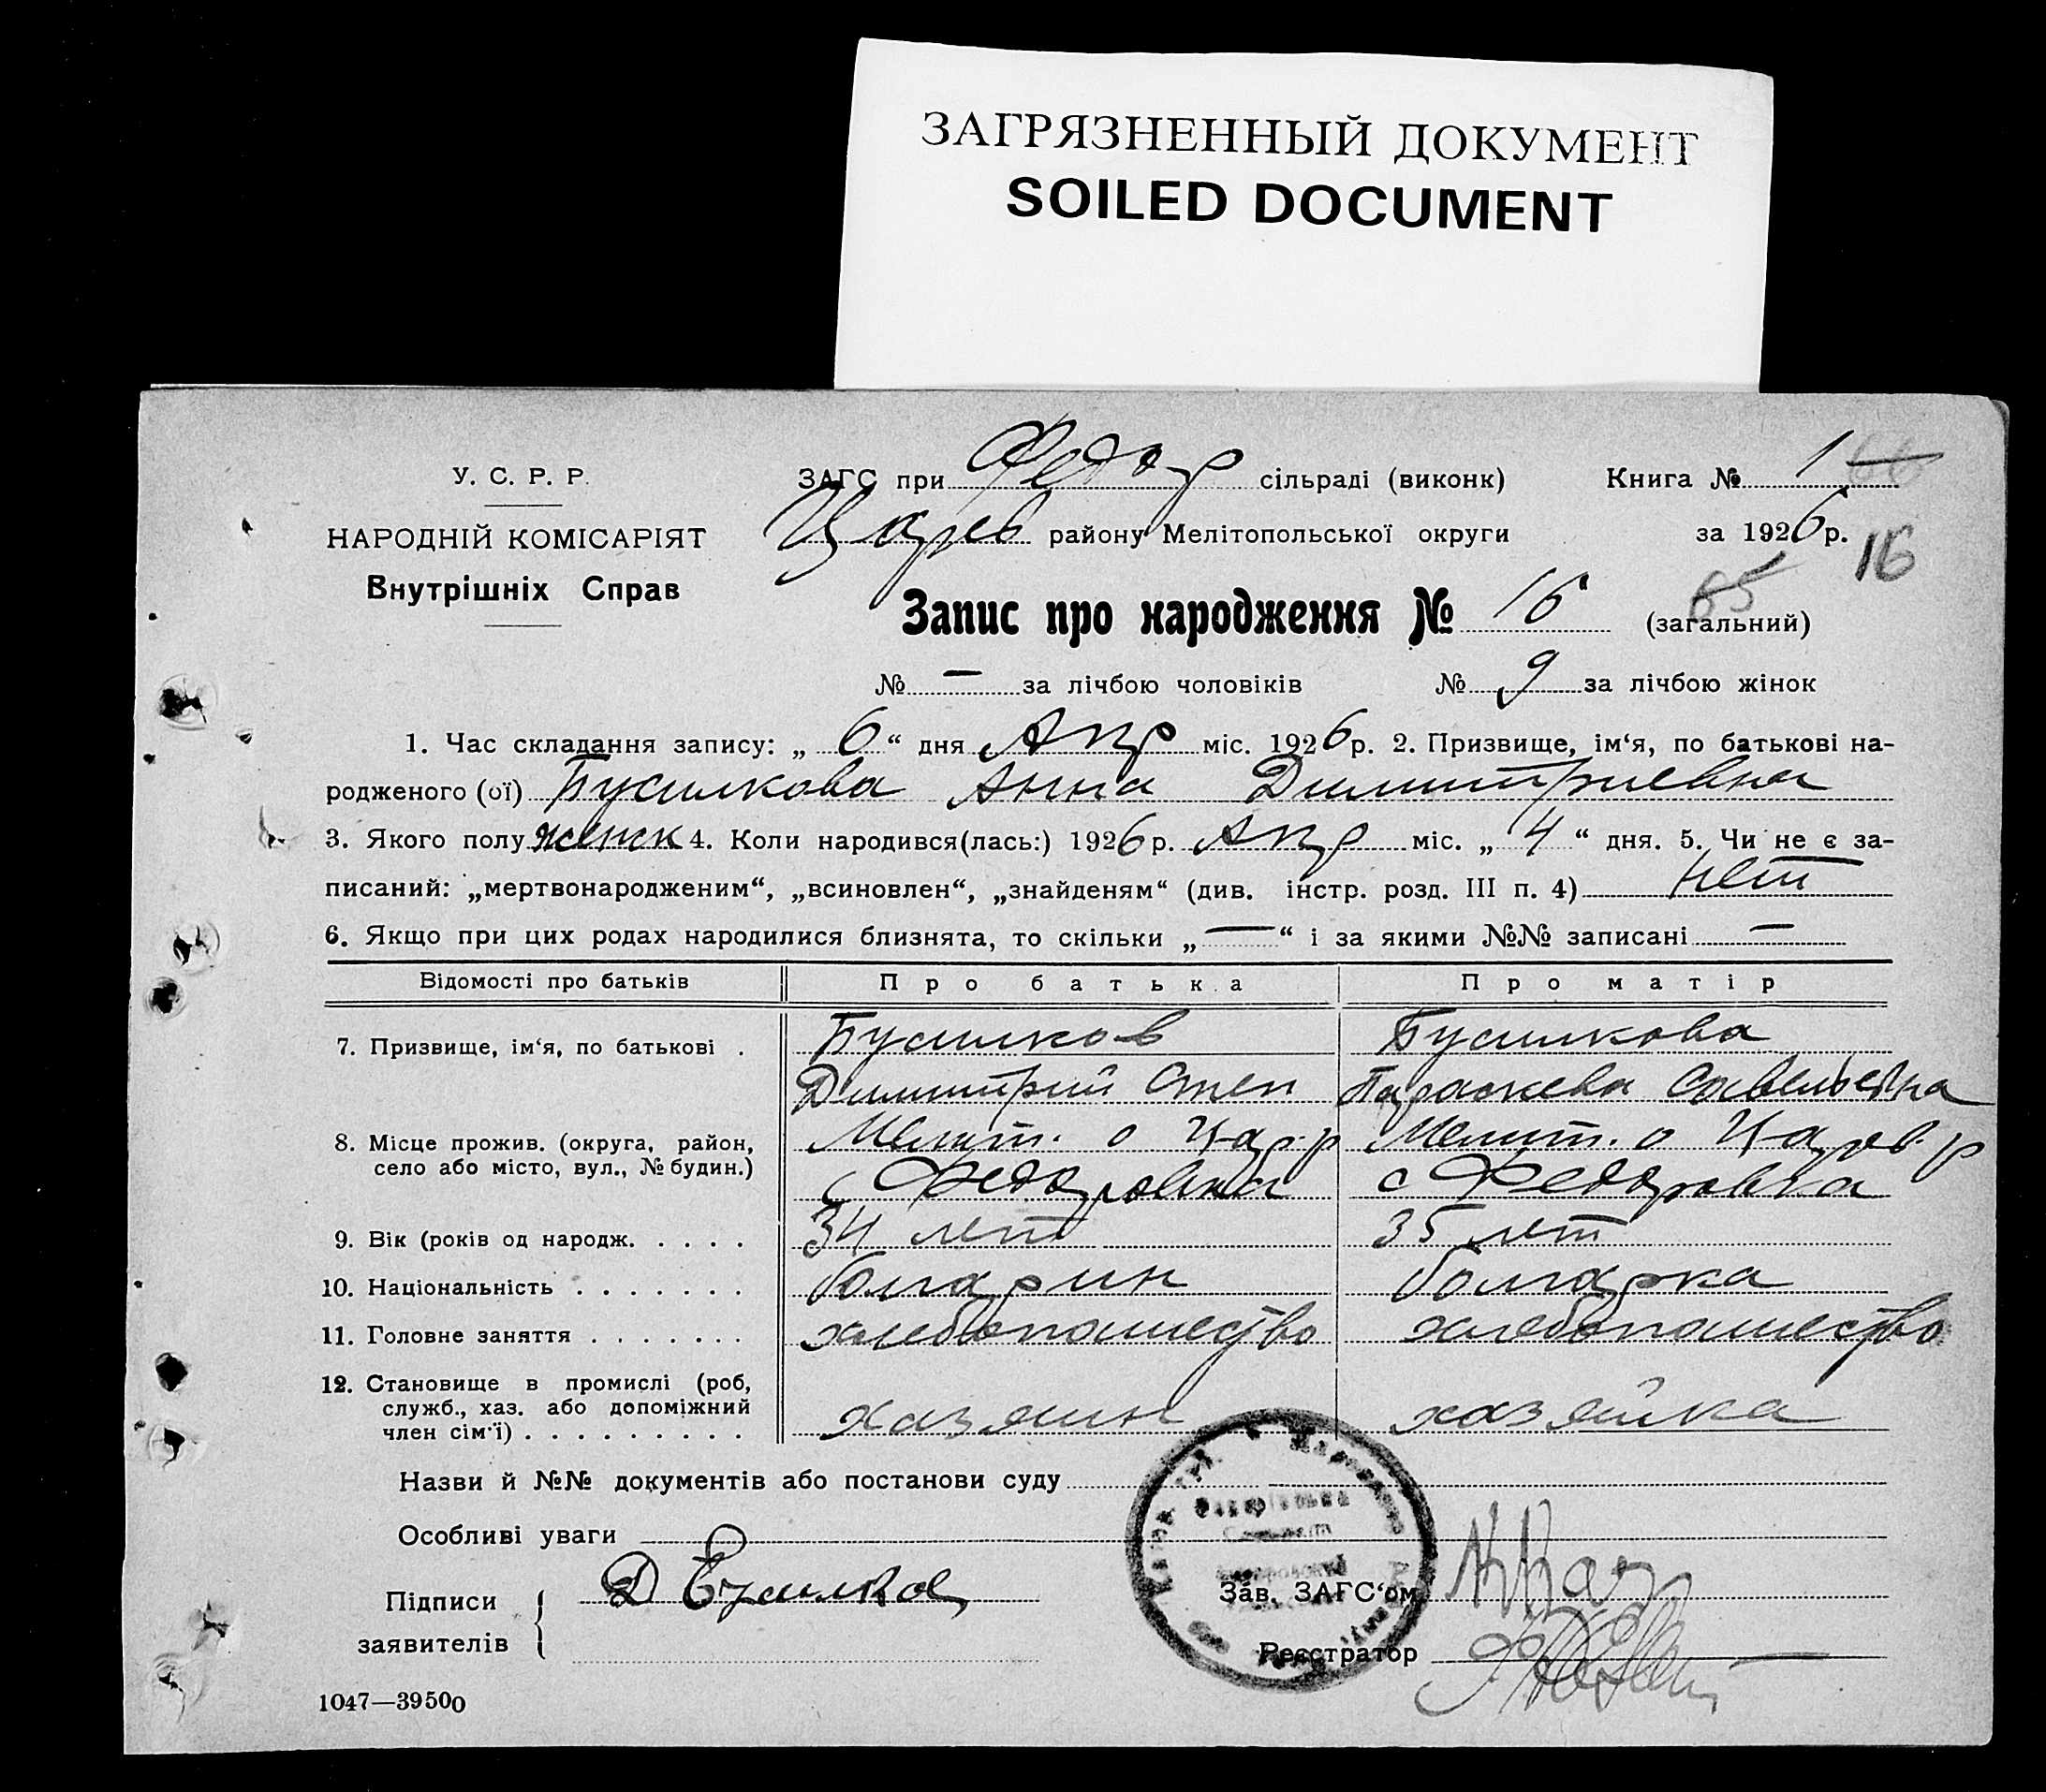 ЗАГРЯЗНЕННЫЙ ДОКУМЕНТ
SOILED DOCUMENT
У. С. Р. Р.
НАРОДНІЙ КОМІСАРІЯТ
Внутрішніх Справ
ЗАГС при Федор сільраді (виконк)
Книга № 1
Царев району Мелітопольської округи
за 1926 р.
16
Запис про народження № 16 (загальний)
65
№ — за лічбою чоловіків № 9 за лічбою жінок
1. Час складання запису: „ 6 “ дня Апр міс. 1926 р. 2. Призвище, ім‘я, по батькові на-
родженого (ої) Бусилкова Анна Димитриевна
3. Якого полу женск 4. Коли народився(лась:) 1926 р. Апр міс. „ 4 “ дня. 5. Чи не є за-
писаний: „мертвонародженим“, „всиновлен“, „знайденям“ (див. інстр. розд. III п. 4) нет
6. Якщо при цих родах народилися близнята, то скільки „ — “ і за якими №№ записані —
Відомості про батьків Про батька Про матір
7. Призвище, ім‘я, по батькові . Бусилков Бусилкова
Димитрий Степ Параскева Савельевна
8. Місце прожив. (округа, район, Мелит. о Цар. р Мелит. о Царев. р
село або місто, вул., № будин.) с Федоровка с Федоровка
9. Вік (років од народж. . . . . 34 лет 35 лет
10. Національність . . . . . . . болгарин болгарка
11. Головне заняття . . . . . . . хлебопашество хлебопашество
12. Становище в промислі (роб,
служб., хаз. або допоміжний
член сім‘ї) . . . . . . . . . хазяин хазяйка
Назви й №№ документів або постанови суду
Особливі уваги
Підписи
заявителів
Д Бусилков
Зав. ЗАГС‘ом
Реєстратор
1047—39500